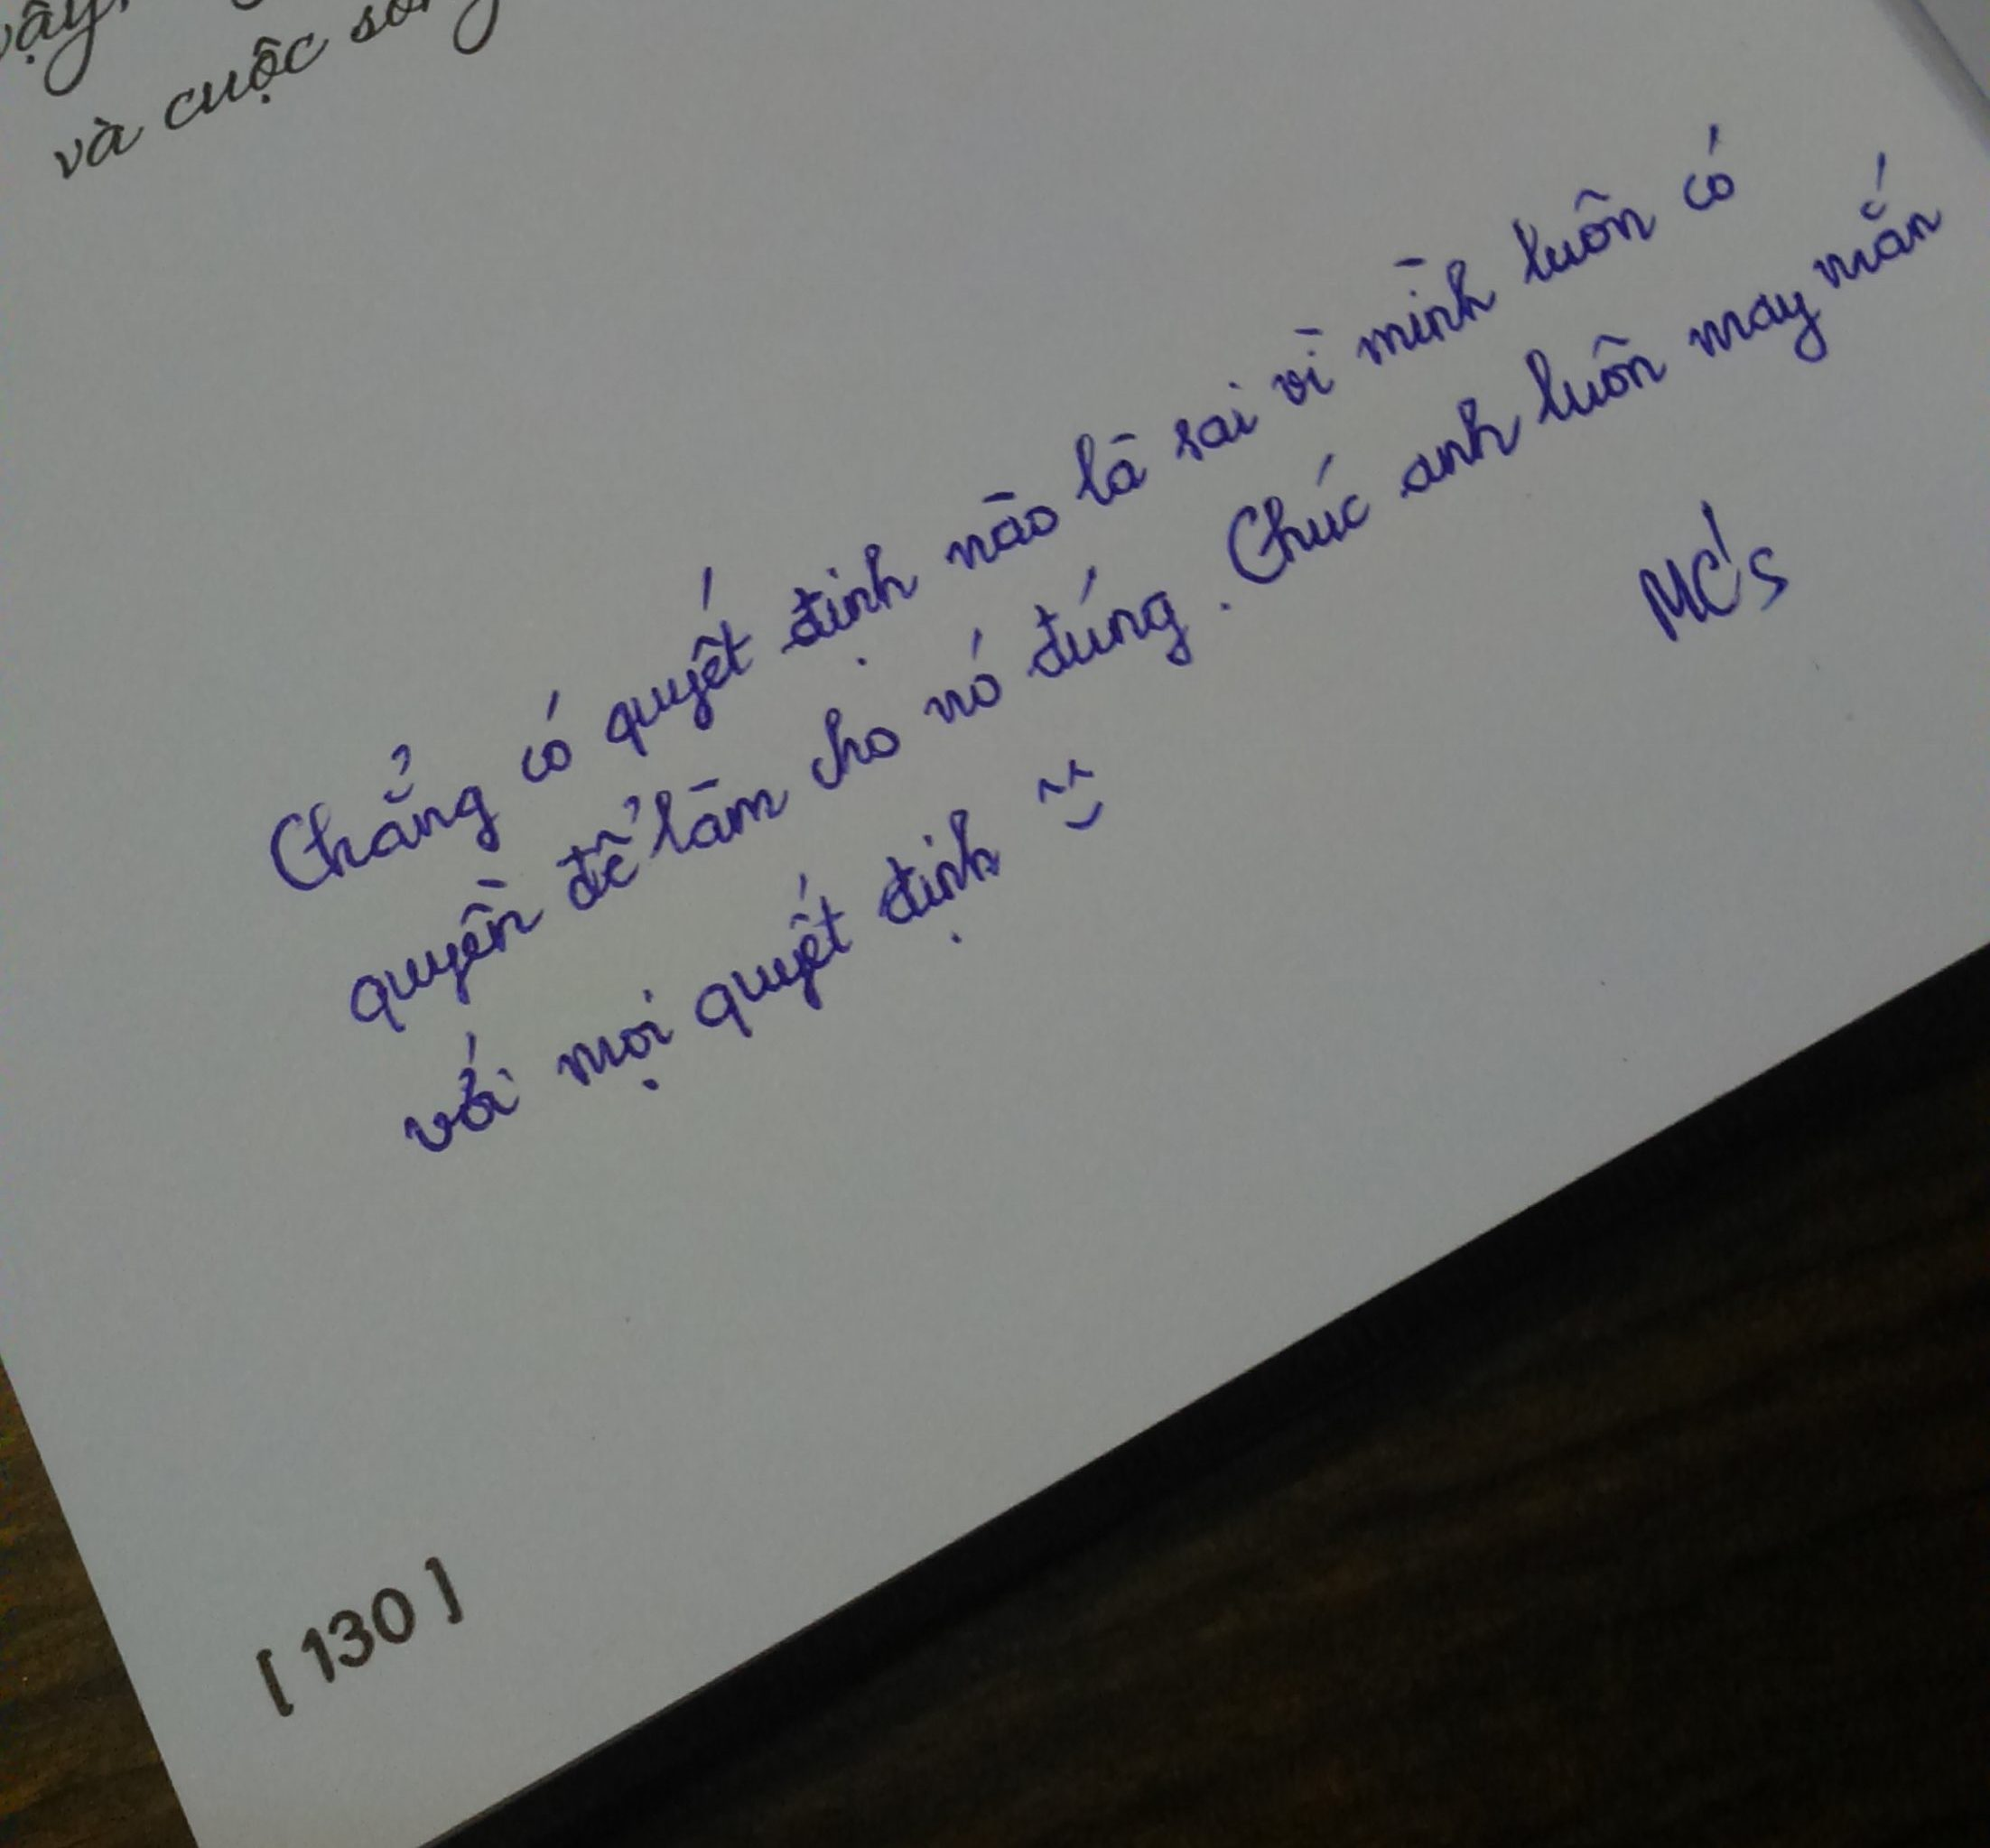 và cuộc
Chẳng có quyết định nào là sai vì mình luôn có
quyền để làm cho nó đúng. Chúc anh luôn may mắn
với mọi quyết định
MC's
[ 130 ]